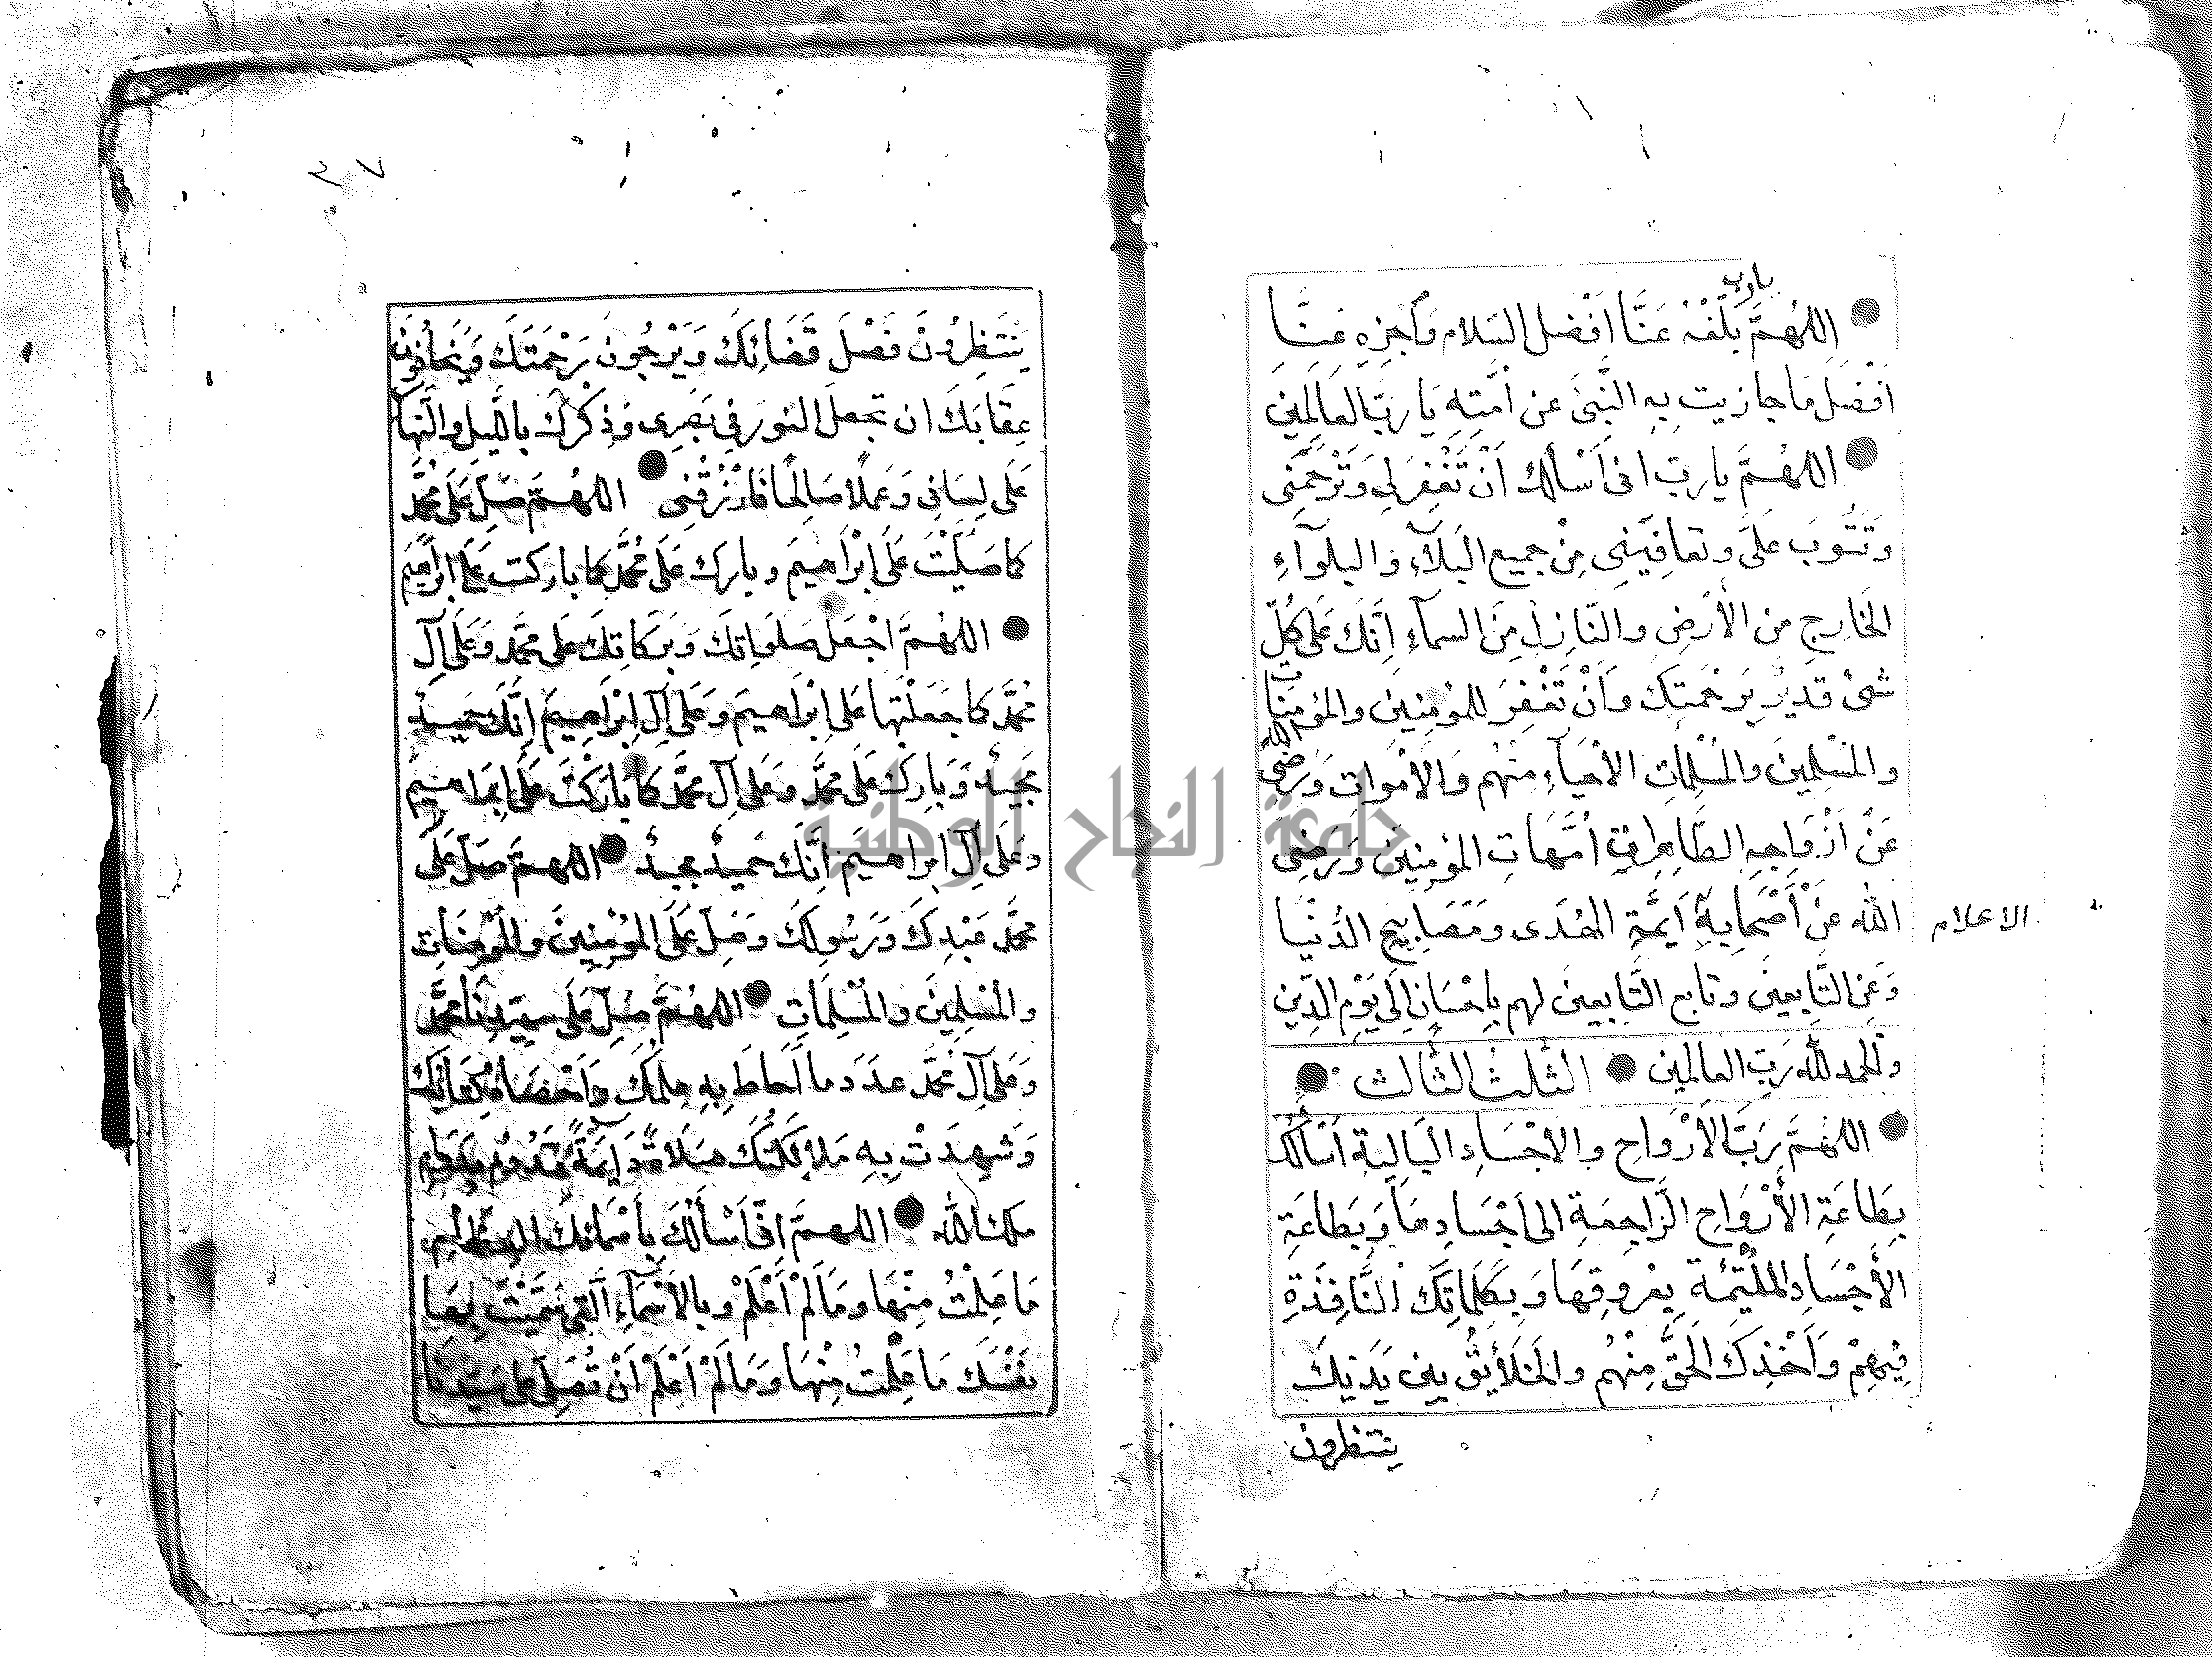 يارب
اللهُمَّ بَلِّغْهُ عَنَّا اَفْضل السَلام وَاَجْزِهِ عَنَّا
اَفْضَلَ مَا جازيت بِهِ النَّبِىَّ عن اُمَّتِهِ يَا رَبَّ العَالَمِينَ
اللهُمَّ يا ربّ انى اَسْألك اَنْ تَغْفِرَ لِى وَتَرْحَمَنِى
وَتَتُوبَ عَلَىَّ وتعافِيَنِى مِنْ جميع البَلآءِ والبلوآءِ
الخَارِجِ من الأَرضِ والنَّازِلِ مِنَ السمآءِ اِنَّكَ عَلَى كُلِّ
شىْ قديرٌ بِرَحْمَتِكَ وَاَنْ تَغْفِرَ للمُؤمِنِينَ والمُؤمِنَات
والمُسْلِمِينَ والمُسْلِمَاتِ الأحيَآءِ مِنْهُم وَالأَمْوَات وَرَضِىَ الله
عَنْ اَزْوَاجِهِ الطَّاهِرَاتِ اُمَّهَاتِ المؤمِنِينَ وَرَضِىَ
الله عَنْ اَصْحَابِهِ اَيِمَّةِ الهُدَى وَمَصَابِيحِ الدُّنْيَا
الاعلام
وَعَنِ التَّابِعِينَ وتَابع التَّابِعينَ لهم بِاِحْسَانٍ اِلَى يَوْمِ الدِّينِ
والحمد لله رَبِّ العالَمِين الثُّلثُ الثَّالث
اللهُمَّ رَبَّ الأَرْوَاحِ والاَجْسَادِ البَالِيَةِ اَسْاَلُكَ
بِطَاعَةِ الأَرْوَاحِ الرَّاجِعَةِ الى اَجْسَادِهَا وَبِطَاعَةِ
الأَجْسَادِ المُلْتَئِمَةِ بِعُرُوقِهَا وَبِكَلِمَاتِكَ النَّافِذَةِ
فِيهِمْ وَاَخْذِكَ الحَقَّ مِنْهُم والخَلاَئِقُ بين يَدَيْكَ
ينتظرون
يَنْتَظِرُونَ فَضْلَ قَضَائِكَ وَيَرْجُونَ رَحْمَتَكَ وَيَخَافُونَ
عِقَابَكَ ان تجعلَ النورَ فى بَصَرِى وَذِكْرَكَ بِاللَّيلِ والنَّهَار
عَلَى لِسَانِى وَعَمَلًا صَالِحًا فَارْزُقْنِى اللهُمَّ صَلِّ عَلَى مُحَمَّد
كما صَلَيْتَ عَلَى اِبْرَاهيمَ وبارك عَلَى مُحَمَّد كما باركت عَلَى ابراهيم
اللهُمَّ اجْعَلْ صَلَوَاتِكَ وَبَرَكَاتِكَ عَلَى محمَّد وَعَلَى آلِ
مُحَمَّد كما جَعَلْتَها عَلَى اِبْرَاهيمَ وعَلَى آلِ اِبْرَاهِيمَ اِنَّكَ حَمِيدٌ
مَجِيدٌ وَبَارِك عَلَى محمَّد وَعَلَى آلِ محمَّد كما بَارَكْتَ عَلَى اِبراهيم
وعَلَى آلِ ابراهيمَ اِنَّكَ حَميدٌ مجيدٌ اللهمَّ صَلِّ عَلَى
محمَّد عَبْدِكَ وَرَسُولِكَ وَصَلِّ عَلَى المُؤْمِنِينَ والمُؤْمِنَاتِ
والمُسْلِمِينَ والمُسْلِمَاتِ اللهُمَّ صَلِّ عَلَى سيدنا محمَّد
وَعَلَى آلِ محمَّد عدَدَ ما اَحَاطَ بِهِ عِلْمُكَ وَاَحْصَاهُ كِتَابُكَ
وَشَهِدَتْ بِهِ مَلائِكَتُكَ صَلاةً دَايِمَةً تَدُومُ بِدَوامِ
ملك الله اللهمَّ اِنِّى اَسْأَلُكَ بِأَسْمَائِكَ العِظَامِ
مَا عَلِمْتُ مِنْهَا ومَا لَمْ اَعْلَمْ وبِالأَسْمَآءِ الَّتِى سَمَّيْتَ بِهَا
نَفْسَكَ مَا عَلِمْتُ مِنْهَا وَمَا لَمْ اَعْلَمْ اَنْ تُصَلِّىَ عَلَى سَيِّدِنَا
جامعة النجاح الوطنية